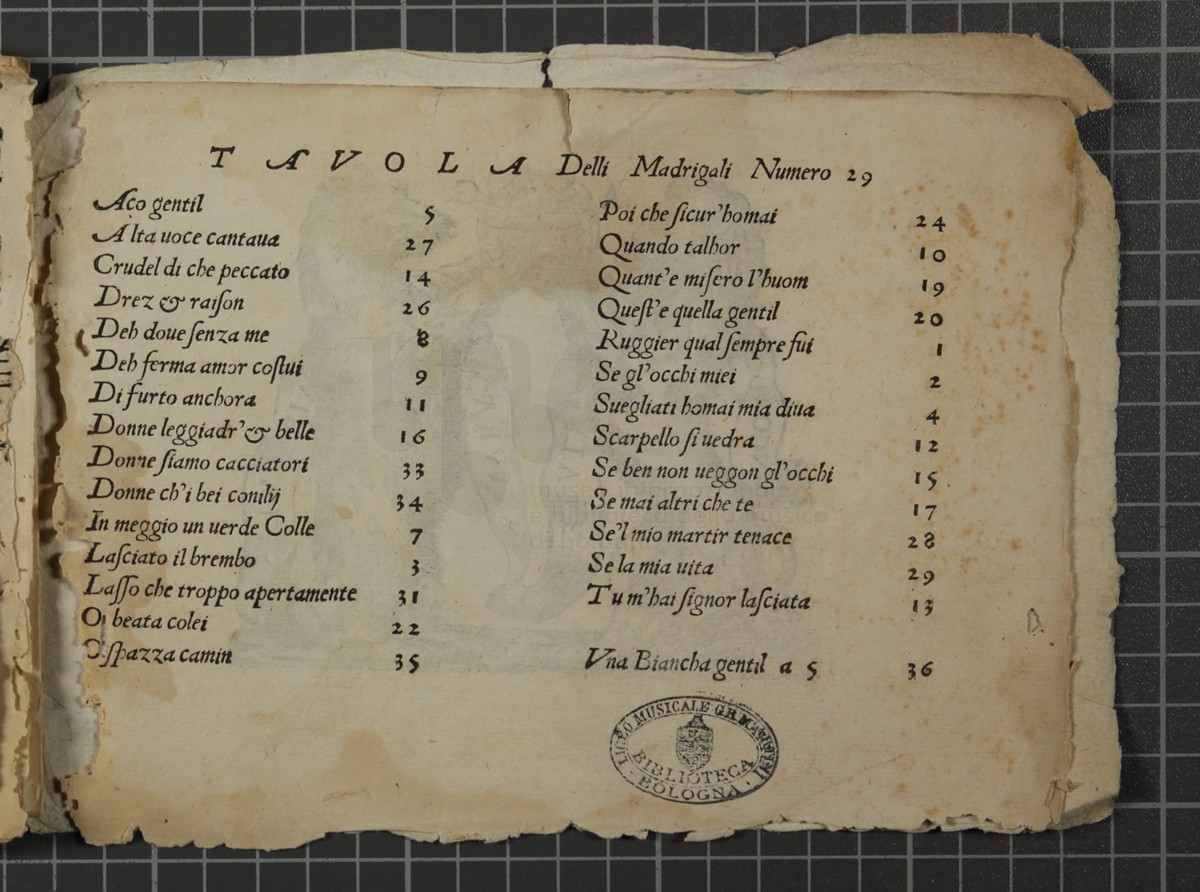 TAVOLA Delli Madrigali Numero 29
Aco gentil 5
Alta uoce cantaua 27
Crudel di che peccato 14
Drez & raiſon 26
Deh doue ſenza me 8
Deh ferma amor coſtui 9
Di furto anchora 11
Donne leggiadr'& belle 16
Donne ſiamo cacciatori 33
Donne ch'i bei conilij 34
In meggio un uerde Colle 7
Laſciato il brembo 3
Laſſo che troppo apertamente 31
O beata colei 22
O ſpazza camin 35
Poi che ſicur'homai 24
Quando talhor 10
Quant'e miſero l'huom 19
Queſt'e quella gentil 20
Ruggier qual ſempre fui 1
Se gl'occhi miei 2
Suegliati homai mia diua 4
Scarpello ſi uedra 12
Se ben non ueggon gl'occhi 15
Se mai altri che te 17
Se'l mio martir tenace 28
Se la mia uita 29
Tu m'hai ſignor laſciata 13
Vna Biancha gentil a 5 36
LICEO MUSICALE G.B. MARTINI
BIBLIOTECA
BOLOGNA